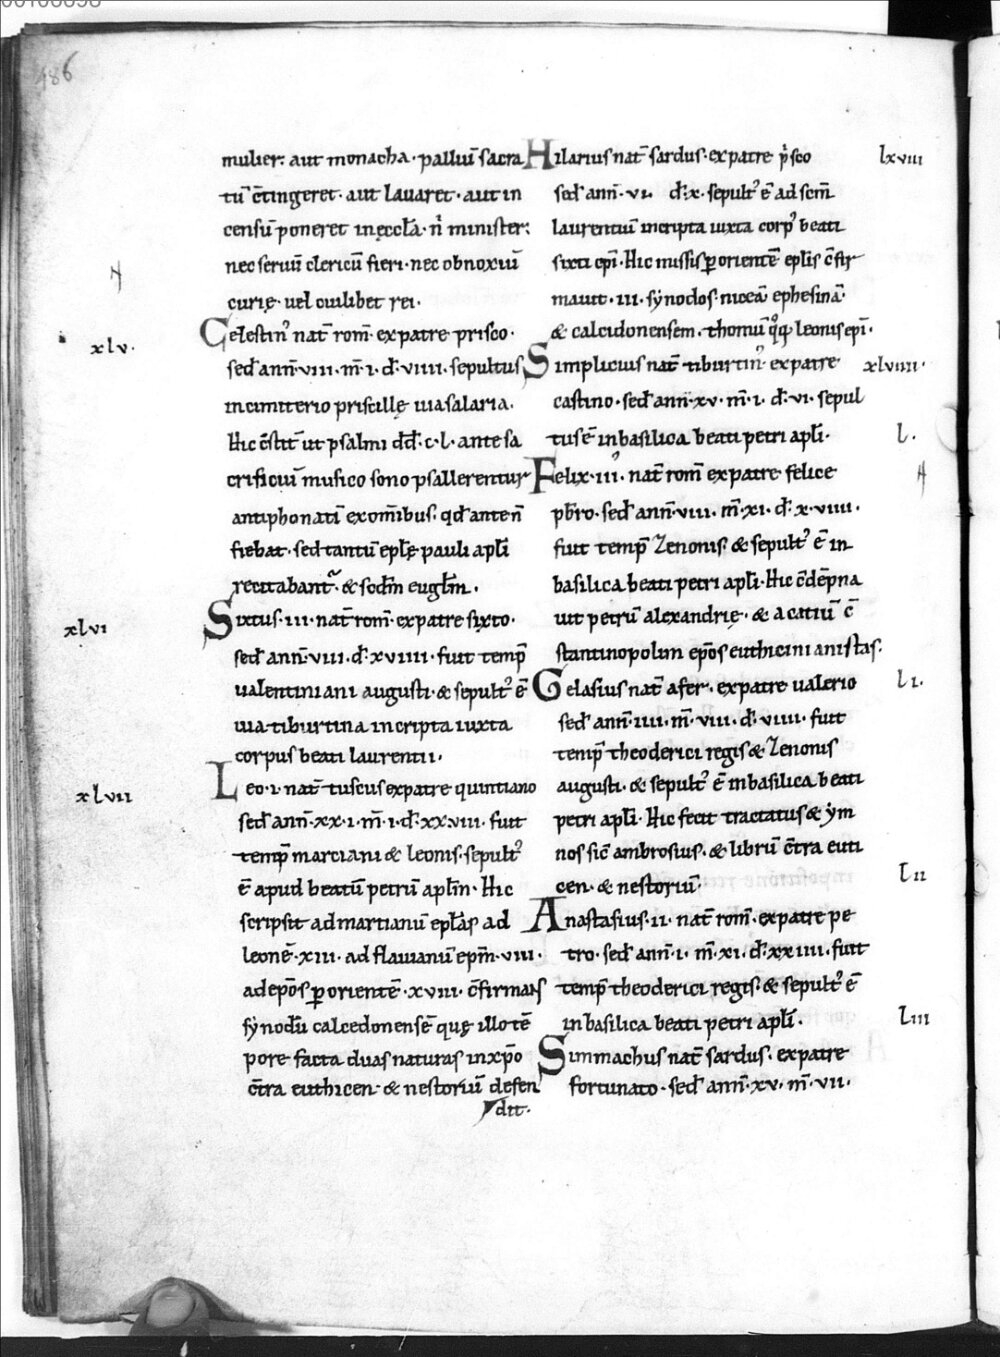 186
mulier: aut monacha · palliū sacra
tū c̄tingeret · aut lavaret · aut in
censū poneret in ęccła · n̄ minister:
nec servū clericū fieri · nec obnoxiū
curię · vel cuilibet rei ·
xlv ·
Celestin᾽ nat̄ rom̄ · ex patre prisco ·
sed̄ ann̄ · viii · m̄ · i · d̄ · viiii · sepultus
in cimiterio priscillę via salaria ·
Hic c̄stit̄ ut psalmi dd̄ · c · l · ante sa
crificiū musico sono psallerentur
antiphonatī ex om̄ibus · qd̄ ante n̄
fiebat · sed tantū epłę pauli apłi
recitabant᷑ · & sc̄dm euglm̄ ·
xlvi
Sixtus · iii · nat̄ rom̄ · ex patre sixto ·
sed̄ ann̄ · viii · d̄ · xviiii · fuit temp̄
valentiniani augusti · & sepult᾽ ē
via tiburtina in cripta iuxta
corpus beati laurentii ·
xlvii
Leo · i · nat̄ tuscus ex patre quintiano
sed̄ ann̄ · xx · i · m̄ · i · d̄ · xxviii · fuit
temp̄ marciani & leonis · sepult᾽
ē apud beatū petrū aplm̄ · Hic
scripsit ad martianū epłas ad
leonē · xiii · ad flavianū epm̄ · viii ·
ad ep̄os ꝑ orientē · xviii · c̄firmans
synodū calcedonensē quę illo tē
pore facta duas naturas in xp̄o
c̄tra euthicen · & nestoriū defen
dit ·
Hilarius nat̄ sardus · ex patre p̄sco
lxviii
sed̄ ann̄ · vi · d̄ · x · sepult᾽ ē ad sc̄m
laurentiū in cripta iuxta corp᾽ beati
sixti ep̄i · Hic missis ꝑ orientē eplis c̄fir
mavit · iii · synodos · niceā ephesinā ·
& calcidonensem · thomū qq̄ leonis ep̄i ·
Simplicius nat̄ tiburtin᾽ ex patre
xlviiii ·
castino · sed̄ ann̄ · xv · m̄ · i · d̄ · vi · sepul
tus ē in basilica beati petri apłi ·
l ·
Felix · iii · nat̄ rom̄ ex patre felice
pbr̄o · sed̄ ann̄ · viii · m̄ · xi · d̄ · x · viiii ·
fuit temp̄ Zenonis · & sepult᾽ ē in
basilica beati petri apłi · Hic c̄dēpna
vit petrū alexandrię · & acatiū c̄
stantinopolim ep̄os euthicinianistas ·
Gelasius nat̄ afer · ex patre valerio
li ·
sed̄ ann̄ · iiii · m̄ · viii · d̄ · viiii · fuit
temp̄ theoderici regis & Zenonis
augusti · & sepult᾽ ē in basilica beati
petri apłi · Hic fecit tractatus & ym
nos sic̄ ambrosius · & librū c̄tra euti
cen · & nestoriū ·
lii
Anastasius · ii · nat̄ rom̄ · ex patre pe
tro · sed̄ ann̄ · i · m̄ · xi · d̄ · xxiiii · fuit
temp̄ theoderici regis · & sepult᾽ ē
in basilica beati petri apłi ·
liii
Simmachus nat̄ sardus · ex patre
fortunato · sed̄ ann̄ · xv · m̄ · vii ·